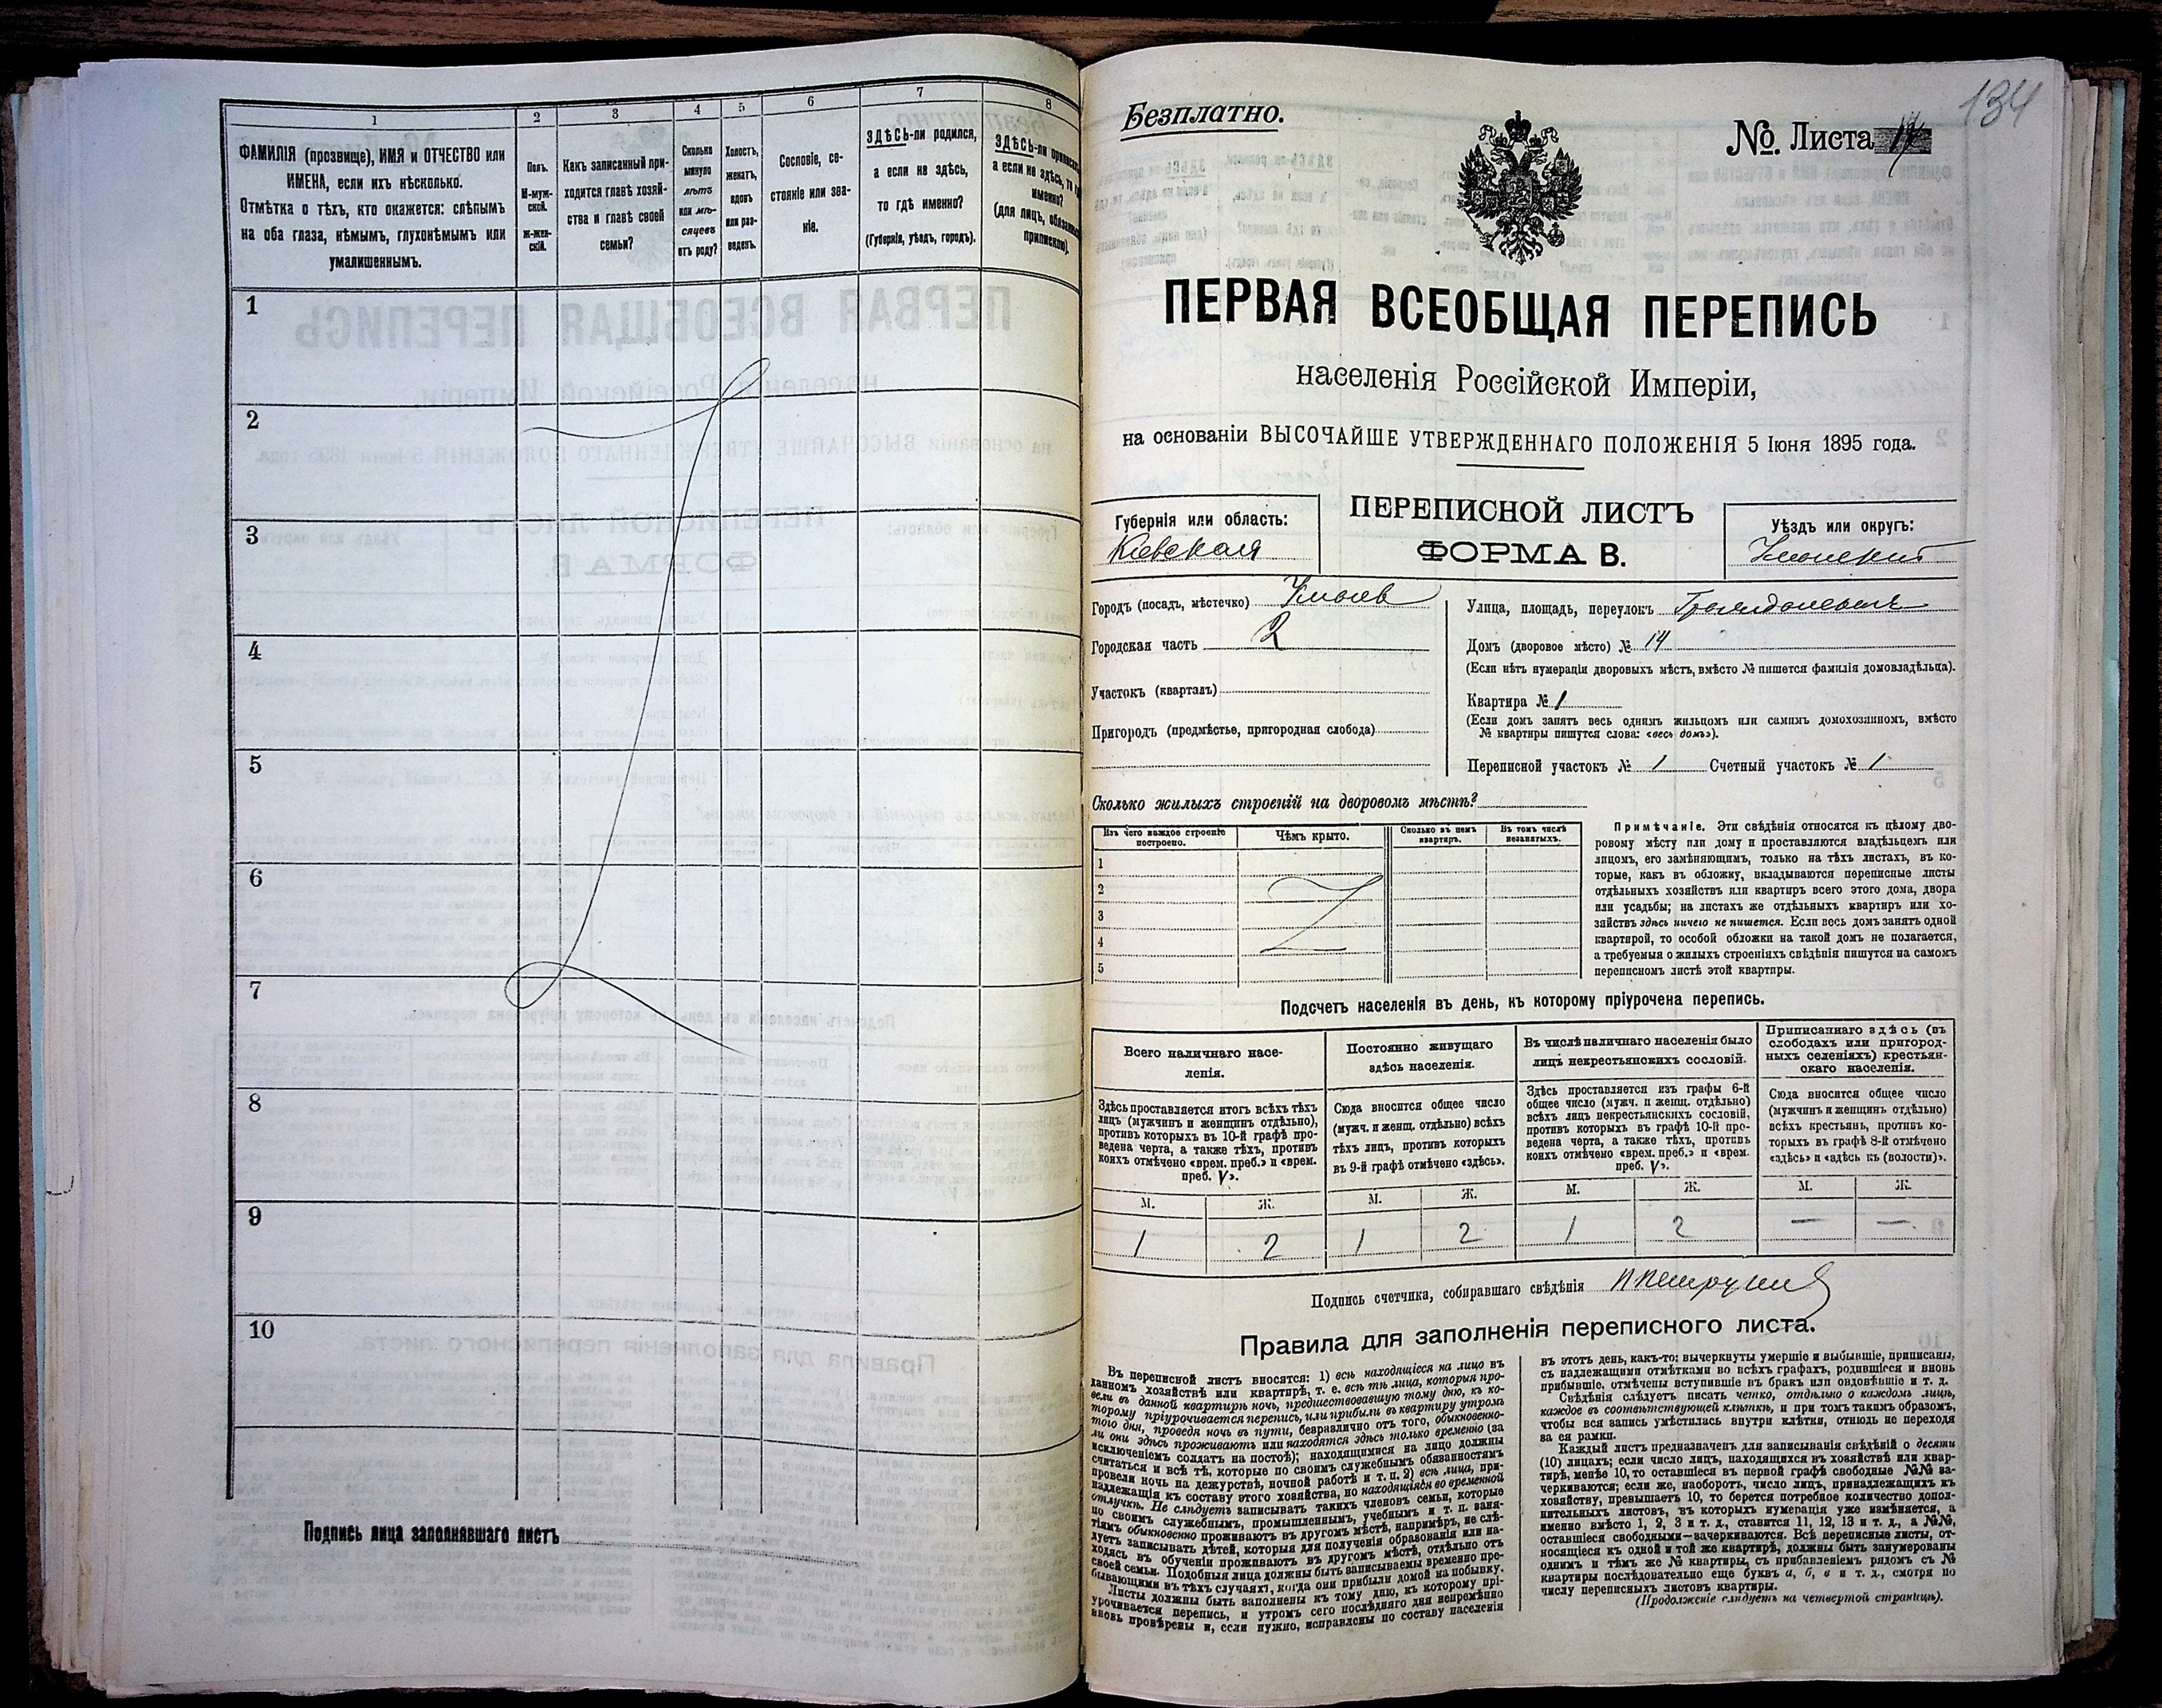 1
2
3
4
5
6
7
8
ФАМИЛІЯ (прозвище), ИМЯ и ОТЧЕСТВО или
ИМЕНА, если ихъ нѣсколько.
Отмѣтка о тѣхъ, кто окажется: слѣпымъ
на оба глаза, нѣмымъ, глухонѣмымъ или
умалишеннымъ.
Полъ.
М-муж-
ской.
Ж-жен-
скій.
Какъ записанный при-
ходится главѣ хозяй-
ства и главѣ своей
семьи?
Сколько
минуло
лѣтъ
или мѣ-
сяцевъ
отъ роду?
Холостъ,
женатъ,
вдовъ
или раз-
веденъ.
Сословіе, со-
стояніе или зва-
ніе.
ЗДѢСЬ-ли родился,
а если не здѣсь,
то гдѣ именно?
(Губернія, уѣздъ, городъ).
ЗДѢСЬ-ли приписанъ,
а если не здѣсь, то гдѣ
именно?
(для лицъ, обязанныхъ
припиской).
1
2
3
4
5
6
7
8
9
10
Подпись лица заполнявшаго листъ
134
Безплатно.
№. Листа 14
ПЕРВАЯ ВСЕОБЩАЯ ПЕРЕПИСЬ
населенія Россійской Имперіи,
на основаніи ВЫСОЧАЙШЕ УТВЕРЖДЕННАГО ПОЛОЖЕНІЯ 5 Іюня 1895 года.
Губернія или область:
Кіевская
ПЕРЕПИСНОЙ ЛИСТЪ
ФОРМА В.
Уѣздъ или округъ:
Городъ (посадъ, мѣстечко)
Городская часть 2
Участокъ (кварталъ)
Пригородъ (предмѣстье, пригородная слобода)
Улица, площадь, переулокъ
Домъ (дворовое мѣсто) № 14
(Если нѣтъ нумераціи дворовыхъ мѣстъ, вмѣсто № пишется фамилія домовладѣльца).
Квартира № 1
(Если домъ занятъ весь однимъ жильцомъ или самимъ домохозяиномъ, вмѣсто
№ квартиры пишутся слова: «весь домъ»).
Переписной участокъ № 1 Счетный участокъ № 1
Сколько жилыхъ строеній на дворовомъ мѣстѣ?
Изъ чего каждое строеніе
построено.
Чѣмъ крыто.
Сколько въ немъ
квартиръ.
Въ томъ числѣ
незанятыхъ.
1
2
3
4
5
Примѣчаніе. Эти свѣдѣнія относятся къ цѣлому дво-
ровому мѣсту или дому и проставляются владѣльцемъ или
лицомъ, его замѣняющимъ, только на тѣхъ листахъ, въ ко-
торые, какъ въ обложку, вкладываются переписные листы
отдѣльныхъ хозяйствъ или квартиръ всего этого дома, двора
или усадьбы; на листахъ же отдѣльныхъ квартиръ или хо-
зяйствъ здѣсь ничего не пишется. Если весь домъ занятъ одной
квартирой, то особой обложки на такой домъ не полагается,
а требуемыя о жилыхъ строеніяхъ свѣдѣнія пишутся на самомъ
переписномъ листѣ этой квартиры.
Подсчетъ населенія въ день, къ которому пріурочена перепись.
Всего наличнаго насе-
ленія.
Постоянно живущаго
здѣсь населенія.
Въ числѣ наличнаго населенія было
лицъ некрестьянскихъ сословій.
Приписаннаго здѣсь (въ
слободахъ или пригород-
ныхъ селеніяхъ) крестьян-
скаго населенія.
Здѣсь проставляется итогъ всѣхъ тѣхъ
лицъ (мужчинъ и женщинъ отдѣльно),
противъ которыхъ въ 10-й графѣ про-
ведена черта, а также тѣхъ, противъ
коихъ отмѣчено «врем. преб.» и «врем.
преб. V».
Сюда вносится общее число
(мужч. и женщ. отдѣльно) всѣхъ
тѣхъ лицъ, противъ которыхъ
въ 9-й графѣ отмѣчено «здѣсь».
Здѣсь проставляется изъ графы 6-й
общее число (мужч. и женщ. отдѣльно)
всѣхъ лицъ некрестьянскихъ сословій,
противъ которыхъ въ графѣ 10-й про-
ведена черта, а также тѣхъ, противъ
коихъ отмѣчено «врем. преб.» и «врем.
преб. V».
Сюда вносится общее число
(мужчинъ и женщинъ отдѣльно)
всѣхъ крестьянъ, противъ ко-
торыхъ въ графѣ 8-й отмѣчено
«здѣсь» и «здѣсь къ (волости)».
М. Ж. М. Ж. М. Ж. М. Ж.
1 2 1 2 1 2 — —
Подпись счетчика, собиравшаго свѣдѣнія
Правила для заполненія переписного листа.
Въ переписной листъ вносятся: 1) всѣ находящіеся на лицо въ
данномъ хозяйствѣ или квартирѣ, т. е. всѣ тѣ лица, которыя про-
вели въ данной квартирѣ ночь, предшествовавшую тому дню, къ ко-
торому пріурочивается перепись, или прибыли въ квартиру утромъ
того дня, проведя ночь въ пути, безразлично отъ того, обыкновенно-
ли они здѣсь проживаютъ или находятся здѣсь только временно (за
исключеніемъ солдатъ на постоѣ); находящимися на лицо должны
считаться и всѣ тѣ, которые по своимъ служебнымъ обязанностямъ
провели ночь на дежурствѣ, ночной работѣ и т. п. 2) всѣ лица, при-
надлежащія къ составу этого хозяйства, но находящіяся во временной
отлучкѣ. Не слѣдуетъ записывать такихъ членовъ семьи, которые
по своимъ служебнымъ, промышленнымъ, учебнымъ и т. п. заня-
тіямъ обыкновенно проживаютъ въ другомъ мѣстѣ, напримѣръ, не слѣ-
дуетъ записывать дѣтей, которыя для полученія образованія или на-
ходясь въ обученіи проживаютъ въ другомъ мѣстѣ, отдѣльно отъ
своей семьи. Подобныя лица должны быть записываемы временно пре-
бывающими въ тѣхъ случаяхъ, когда они прибыли домой на побывку.
Листы должны быть заполнены къ тому дню, къ которому прі-
урочивается перепись, и утромъ сего послѣдняго дня непремѣнно
вновь провѣрены и, если нужно, исправлены по составу населенія
въ этотъ день, какъ-то: вычеркнуты умершіе и выбывшіе, приписаны,
съ надлежащими отмѣтками во всѣхъ графахъ, родившіеся и вновь
прибывшіе, отмѣчены вступившіе въ бракъ или овдовѣвшіе и т. д.
Свѣдѣнія слѣдуетъ писать четко, отдѣльно о каждомъ лицѣ,
каждое въ соотвѣтствующей клѣткѣ, и при томъ такимъ образомъ,
чтобы вся запись умѣстилась внутри клѣтки, отнюдь не переходя
за ея рамки.
Каждый листъ предназначенъ для записыванія свѣдѣній о десяти
(10) лицахъ; если число лицъ, находящихся въ хозяйствѣ или квар-
тирѣ, менѣе 10, то оставшіеся въ первой графѣ свободные №№ за-
черкиваются; если же, наоборотъ, число лицъ, принадлежащихъ къ
хозяйству, превышаетъ 10, то берется потребное количество допол-
нительныхъ листовъ, въ которыхъ нумерація уже измѣняется, а
именно вмѣсто 1, 2, 3 и т. д., ставится 11, 12, 13 и т. д., а №№,
оставшіеся свободными—зачеркиваются. Всѣ переписные листы, от-
носящіеся къ одной и той же квартирѣ, должны быть занумерованы
однимъ и тѣмъ же № квартиры, съ прибавленіемъ рядомъ съ №
квартиры послѣдовательно еще буквъ а, б, в и т. д., смотря по
числу переписныхъ листовъ квартиры.
(Продолженіе слѣдуетъ на четвертой страницѣ).